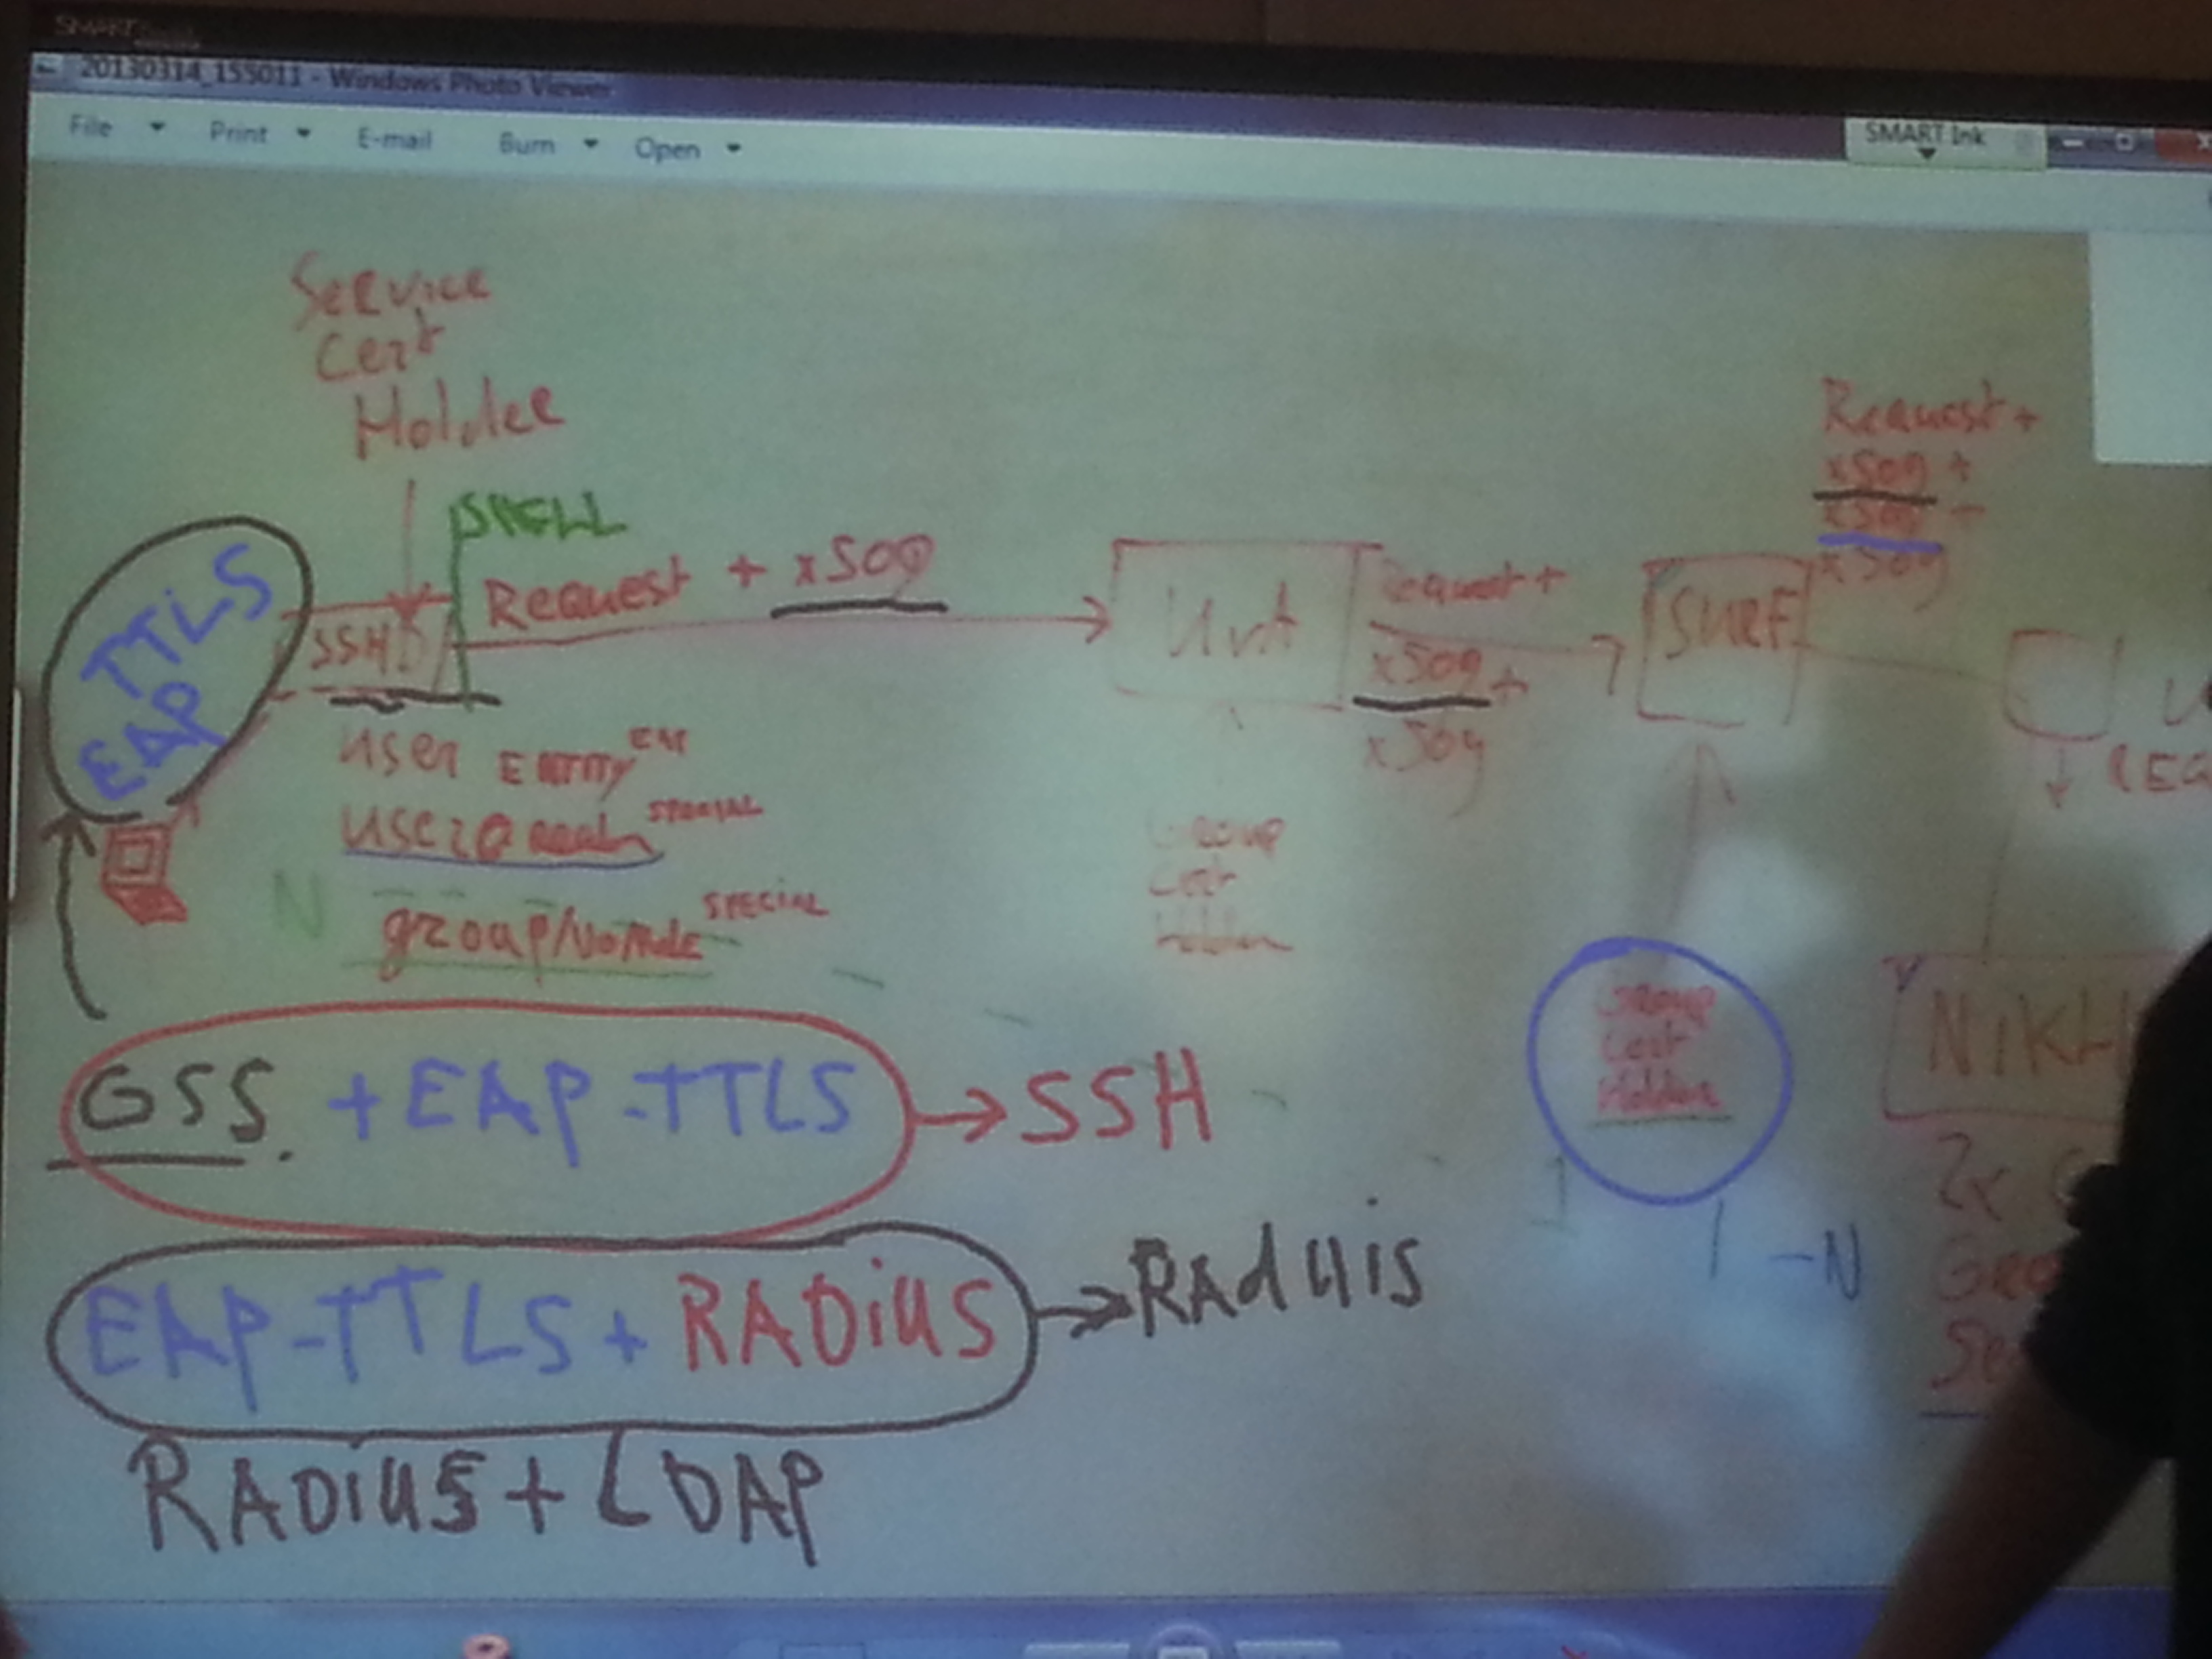 SMART
20130314_155011 - Windows Photo Viewer
File Print E-mail Burn Open
SMART Ink
Service
Cert
Holder
SHELL
Request + x509
TTLS
EAP
SSHD
UvA
Request +
x509 +
x509
SURF
Request +
x509 +
x509 -
x509
user ENTITY
user@realm SPECIAL
N
group/ SPECIAL
Group
Cert
Holder
Group
Cert
Holder
NIKH
2x
1
1 - N
GSS + EAP-TTLS → SSH
EAP-TTLS + RADiUS → RAdUis
RADiUS + LDAP